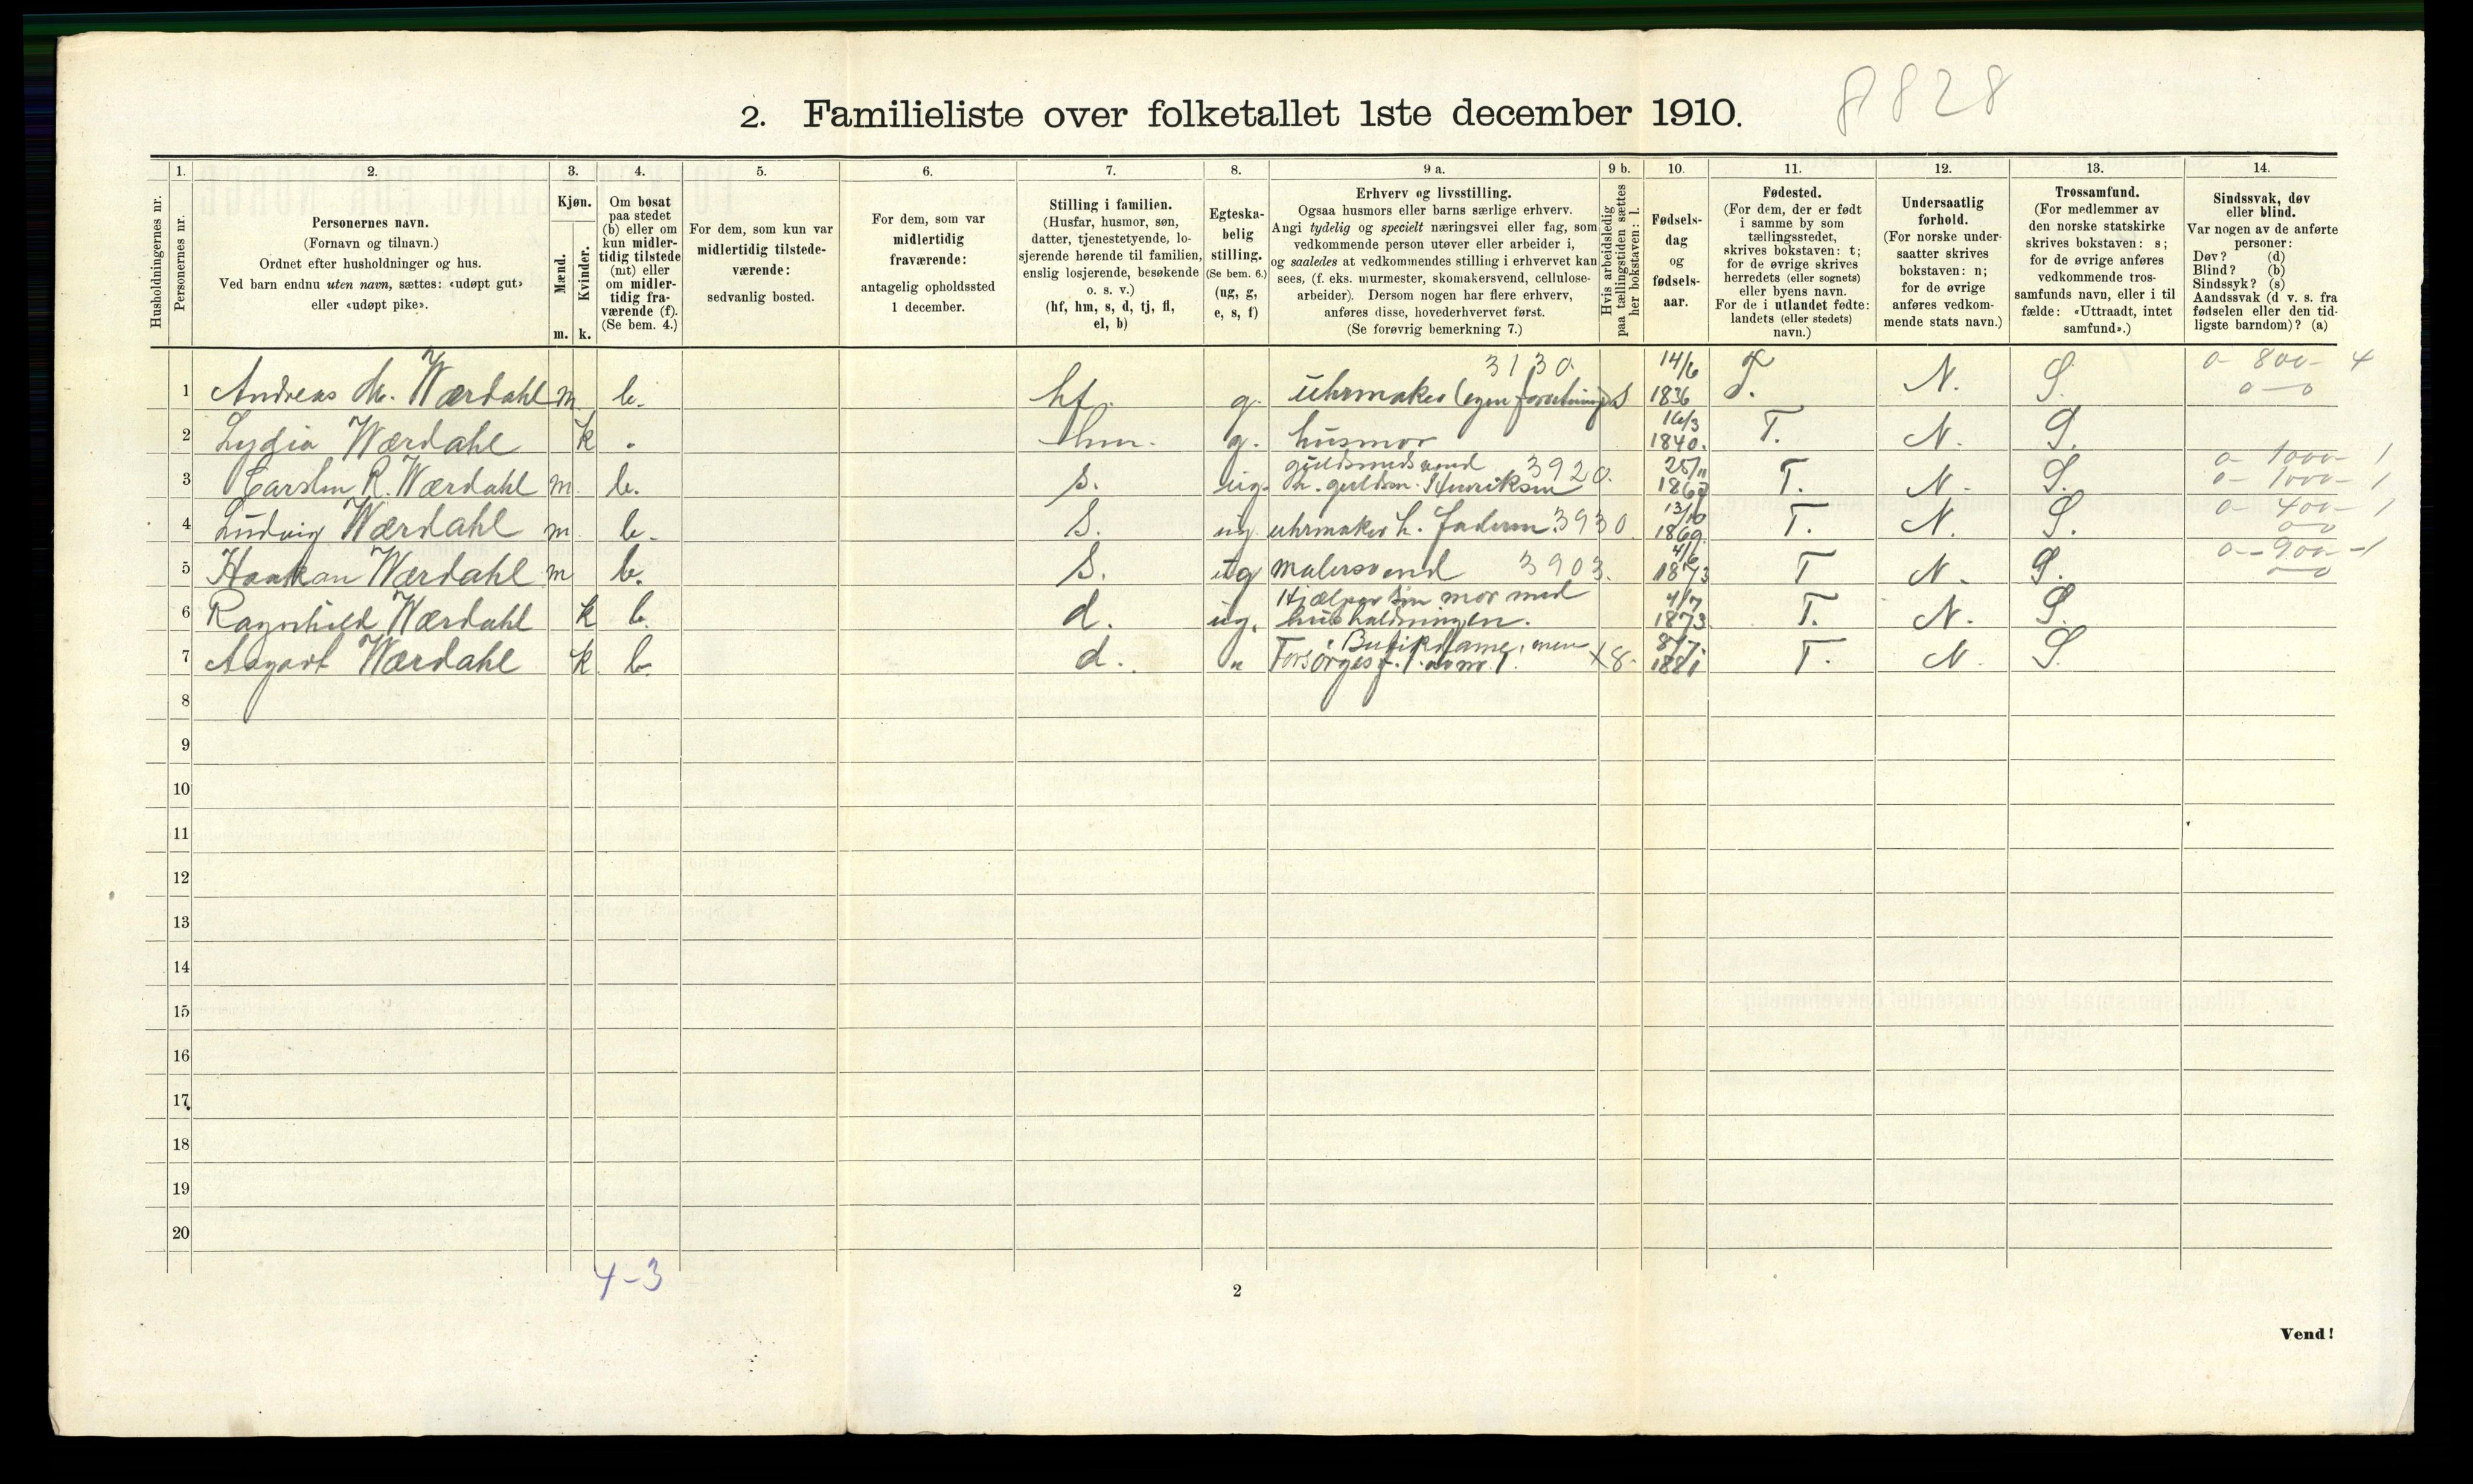 8828
2. Familieliste over folketallet 1ste december 1910.
Husholdningernes nr.
1. Personernes nr.
2. Personernes navn.
(Fornavn og tilnavn.)
Ordnet efter husholdninger og hus.
Ved barn endnu uten navn, sættes: «udøpt gut»
eller «udøpt pike».
3. Kjøn.
Mænd. m.
Kvinder. k.
4. Om bosat
paa stedet
(b) eller om
kun midler-
tidig tilstede
(mt) eller
om midler-
tidig fra-
værende (f).
(Se bem. 4.)
5. For dem, som kun var
midlertidig tilstede-
værende:
sedvanlig bosted.
6. For dem, som var
midlertidig
fraværende:
antagelig opholdssted
1 december.
7. Stilling i familien.
(Husfar, husmor, søn,
datter, tjenestetyende, lo-
sjerende hørende til familien,
enslig losjerende, besøkende
o. s. v.)
(hf, hm, s, d, tj, fl,
el, b)
8. Egteska-
belig
stilling.
(Se bem. 6.)
(ug, g,
e, s, f)
9 a. Erhverv og livsstilling.
Ogsaa husmors eller barns særlige erhverv.
Angi tydelig og specielt næringsvei eller fag, som
vedkommende person utøver eller arbeider i,
og saaledes at vedkommendes stilling i erhvervet kan
sees, (f. eks. murmester, skomakersvend, cellulose-
arbeider). Dersom nogen har flere erhverv,
anføres disse, hovederhvervet først.
(Se forøvrig bemerkning 7.)
9 b. Hvis arbeidsledig
paa tællingstiden sættes
her bokstaven: l.
10. Fødsels-
dag
og
fødsels-
aar.
11. Fødested.
(For dem, der er født
i samme by som
tællingsstedet,
skrives bokstaven: t;
for de øvrige skrives
herredets (eller sognets)
eller byens navn.
For de i utlandet fødte:
landets (eller stedets)
navn.)
12. Undersaatlig
forhold.
(For norske under-
saatter skrives
bokstaven: n;
for de øvrige
anføres vedkom-
mende stats navn.)
13. Trossamfund.
(For medlemmer av
den norske statskirke
skrives bokstaven: s;
for de øvrige anføres
vedkommende tros-
samfunds navn, eller i til
fælde: «Uttraadt, intet
samfund».)
14. Sindssvak, døv
eller blind.
Var nogen av de anførte
personer:
Døv? (d)
Blind? (b)
Sindssyk? (s)
Aandssvak (d v. s. fra
fødselen eller den tid-
ligste barndom)? (a)
3130. 14/6 0 - 800 - 4
1 Andreas M. Wærdahl m b. hf. g. uhrmaker (egen forretning) S 1836 T. N. S. 0 - 0
2 Lydia Wærdahl k . hm. g. husmor 16/3 1840. T. N. S.
3 Carsten R. Wærdahl m. b. s. ug. guldsmedsvend 3920. h. guldsm. Henriksen 25/11 1867 T. N. S. 0 - 1000 - 1 0 - 1000 - 1
4 Ludvig Wærdahl m b. S. ug. uhrmaker h. faderen 3930. 13/10 1869. T. N. S. 0 - 400 - 1 00
5 Haakon Wærdahl m b. S. ug malersvend 3903. 4/6 1873 T N. S. 0 - 900 - 1
6 Ragnhild Wærdahl k b. d. ug. Hjælper sin mor med husholdningen. 4/7 1873. T. N. S.
7 Aagot Wærdahl k b. d. " Butikdame, men Forsørges f. t. av nr 1. X8. 8/7. 1881 T. N. S.
8
9
10
11
12
13
14
15
16
17
18
19
20
4-3
2
Vend!